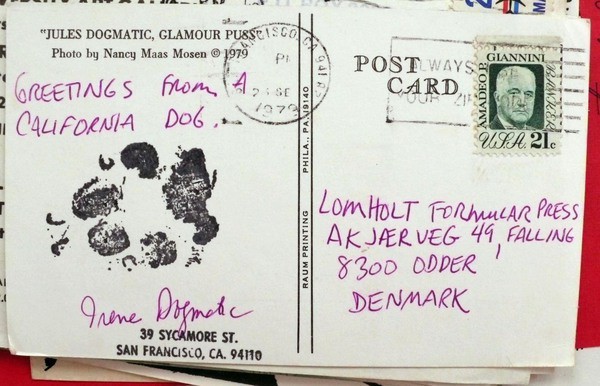 "JULES DOGMATIC, GLAMOUR PUSS"
Photo by Nancy Maas Mosen © 1979
GREETINGS FROM A
CALIFORNIA DOG.
Irene Dogmatic
39 SYCAMORE ST.
SAN FRANCISCO, CA. 94110
RAUM PRINTING PHILA., PA 19140
FRANCISCO, CA
PM
1979
POST
CARD
ALWAYS
USE
YOUR ZIP CODE
AMADEO P. GIANNINI
BANKER
U.S.A. 21c
LOMHOLT FORMULAR PRESS
AKJÆRVEG 49, FALLING
8300 ODDER
DENMARK